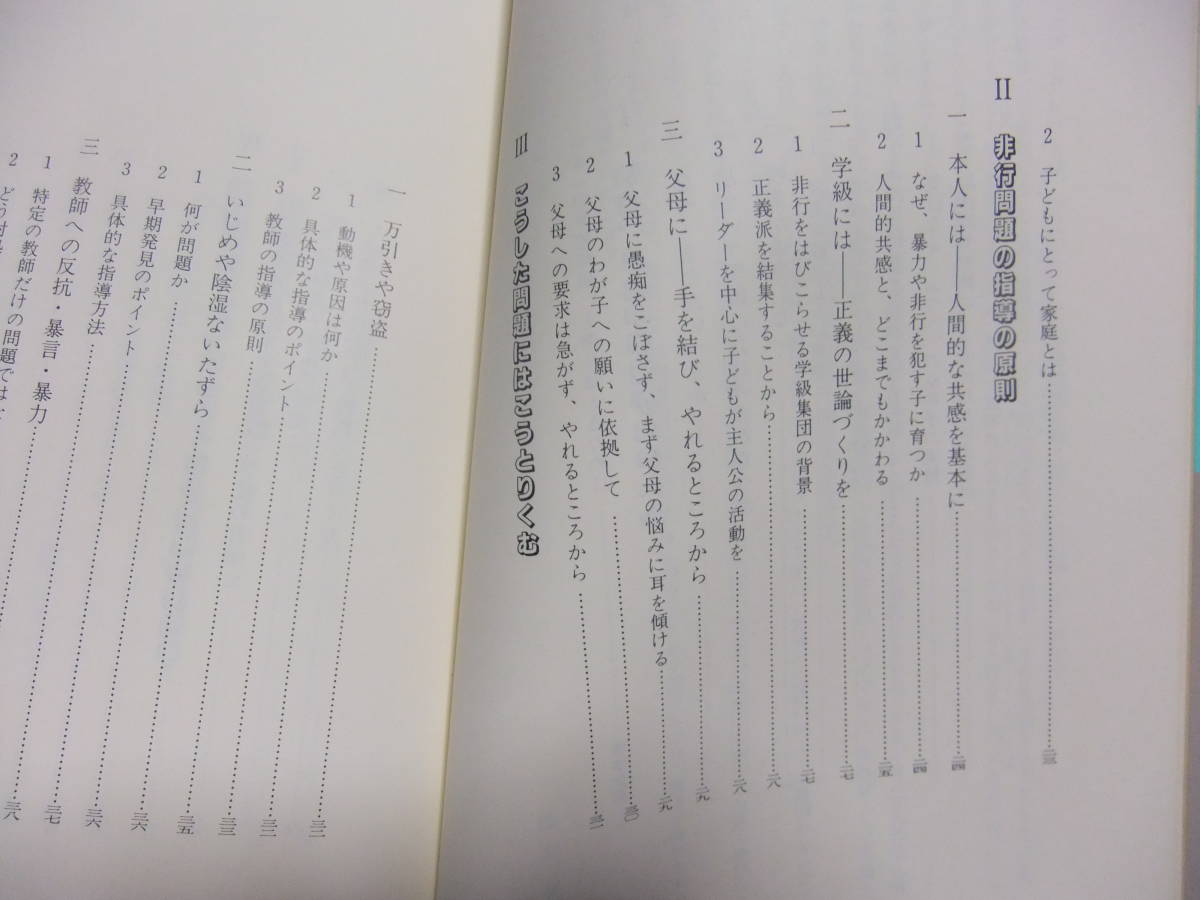 2 子どもにとって家庭とは……二三
II 非行問題の指導の原則
一 本人には——人間的な共感を基本に……二四
1 なぜ、暴力や非行を犯す子に育つか……二四
2 人間的共感と、どこまでもかかわる……二五
二 学級には——正義の世論づくりを……二七
1 非行をはびこらせる学級集団の背景……二七
2 正義派を結集することから……二八
3 リーダーを中心に子どもが主人公の活動を……二八
三 父母に——手を結び、やれるところから……二九
1 父母に愚痴をこぼさず、まず父母の悩みに耳を傾ける……二九
2 父母のわが子への願いに依拠して……三〇
3 父母への要求は急がず、やれるところから……三一
III こうした問題にはこうとりくむ
一 万引きや窃盗
1 動機や原因は何か……三二
2 具体的な指導のポイント
3 教師の指導の原則……三二
二 いじめや陰湿ないたずら……三三
1 何が問題か……三五
2 早期発見のポイント……三六
3 具体的な指導方法……三六
三 教師への反抗・暴言・暴力……三七
1 特定の教師だけの問題では……三八
2 どう対処